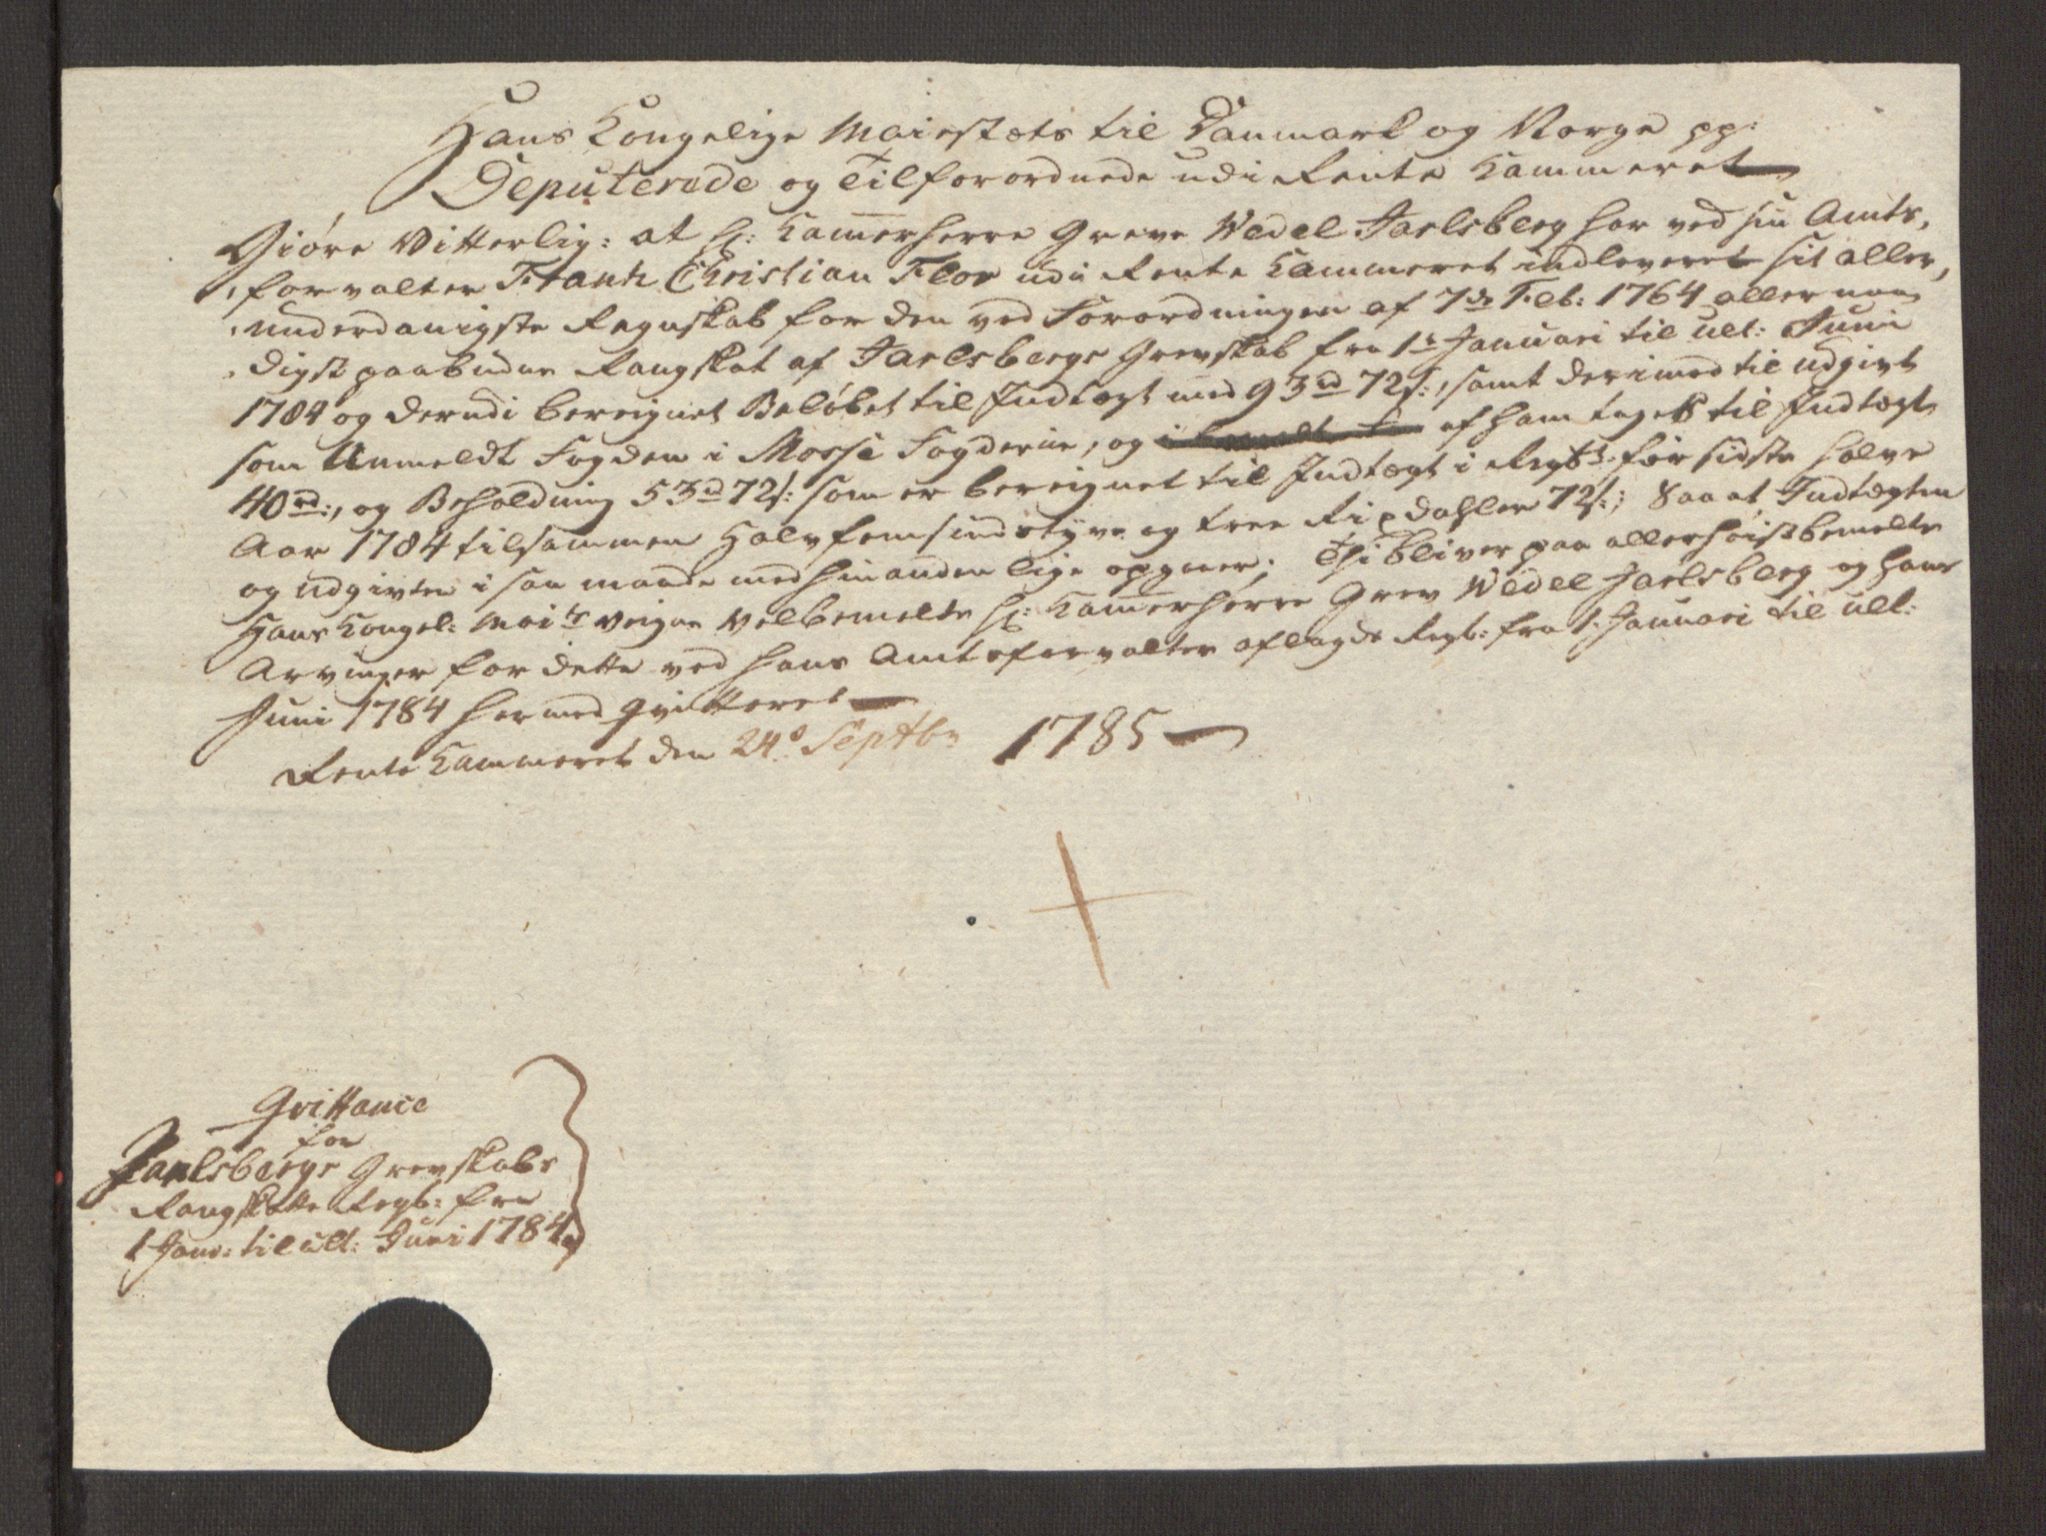 Hans Kongelige Maiestæts til Danmark og Norge pp:
Deputerede og Tilforordnede udi Rente Kammeret
Giöre Vitterlig: at H: Kammerherre Greve Wedel Jarlsberg har ved sin Amts,
forvalter Frantz Christian Flor udi Rente Kammeret indleveret sit aller,
underdanigste Regnskab for den ved Forordningen af 7de Feb: 1764 allernaa,
digst paabudne Rangskat af Jarlsbergs Grevskab fra 1te Januari til ult: Juni
1784 og derudi bereignet Beløbet til Indtægt med 93rd 72s:, samt derimod til udgivt
som Anmeldt Fogden i Mosse Fogderie, og af ham taget til Indtægt
40rd:, og Beholdning 53rd 72s: som er bereignet til Indtægt i Regsk: for sidste halve
Aar 1784 tilsammen Halvfemsindstyve og tree Rixdahler 72s:; Saa at Indtægten
og udgivten i saa maade med hinanden lige opgaaer; Thi bliver paa allerhöistbemelte
Hans Kongel: Maits Veigne Velbemelte H: Kammerherre Grev Wedel Jarlsberg og hans
Arvinger for dette ved hans Amtsforvalter aflagde Regsk: fra 1: Januari til ult:
Juni 1784 hermed qvitteret
Rente Kammeret den 24de Septbr 1785
Qvittance
for
Jarlsbergs Grevskabs
Rangskatte Regsk: fra
1 Janv: til ult: Juni 1784